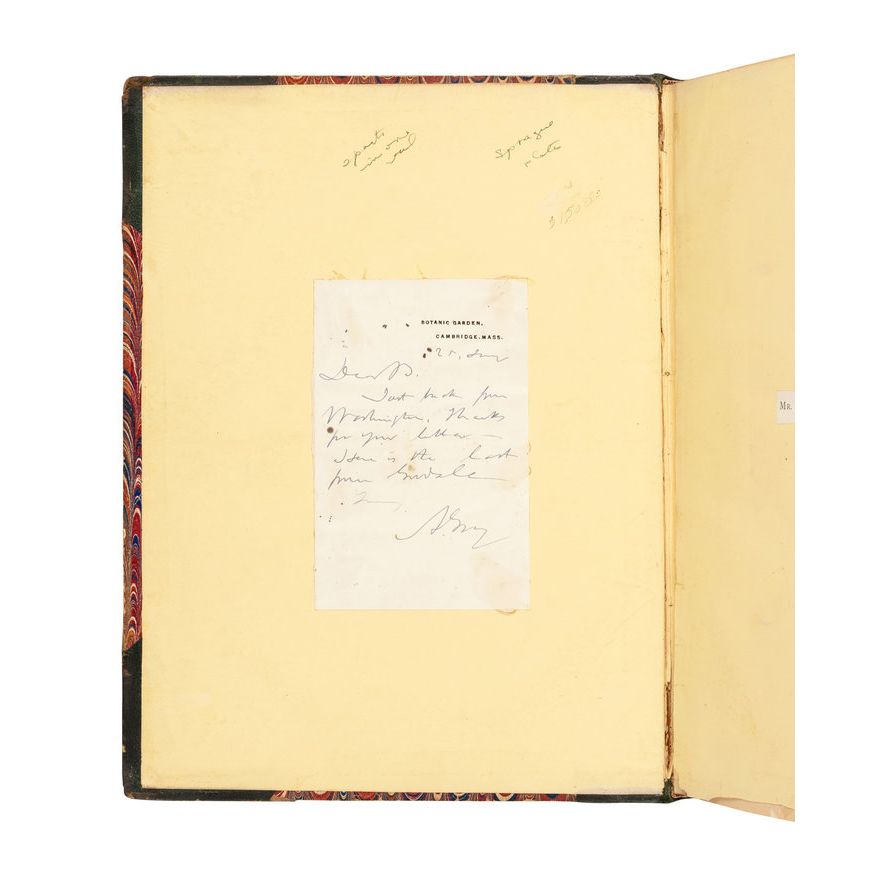 parts
in one
vol
Sprague
plate
BOTANIC GARDEN,
CAMBRIDGE, MASS.
Dear B.
Just back from
Washington. Thanks
for your letter –
Here is the last
from
A. Gray
MR.